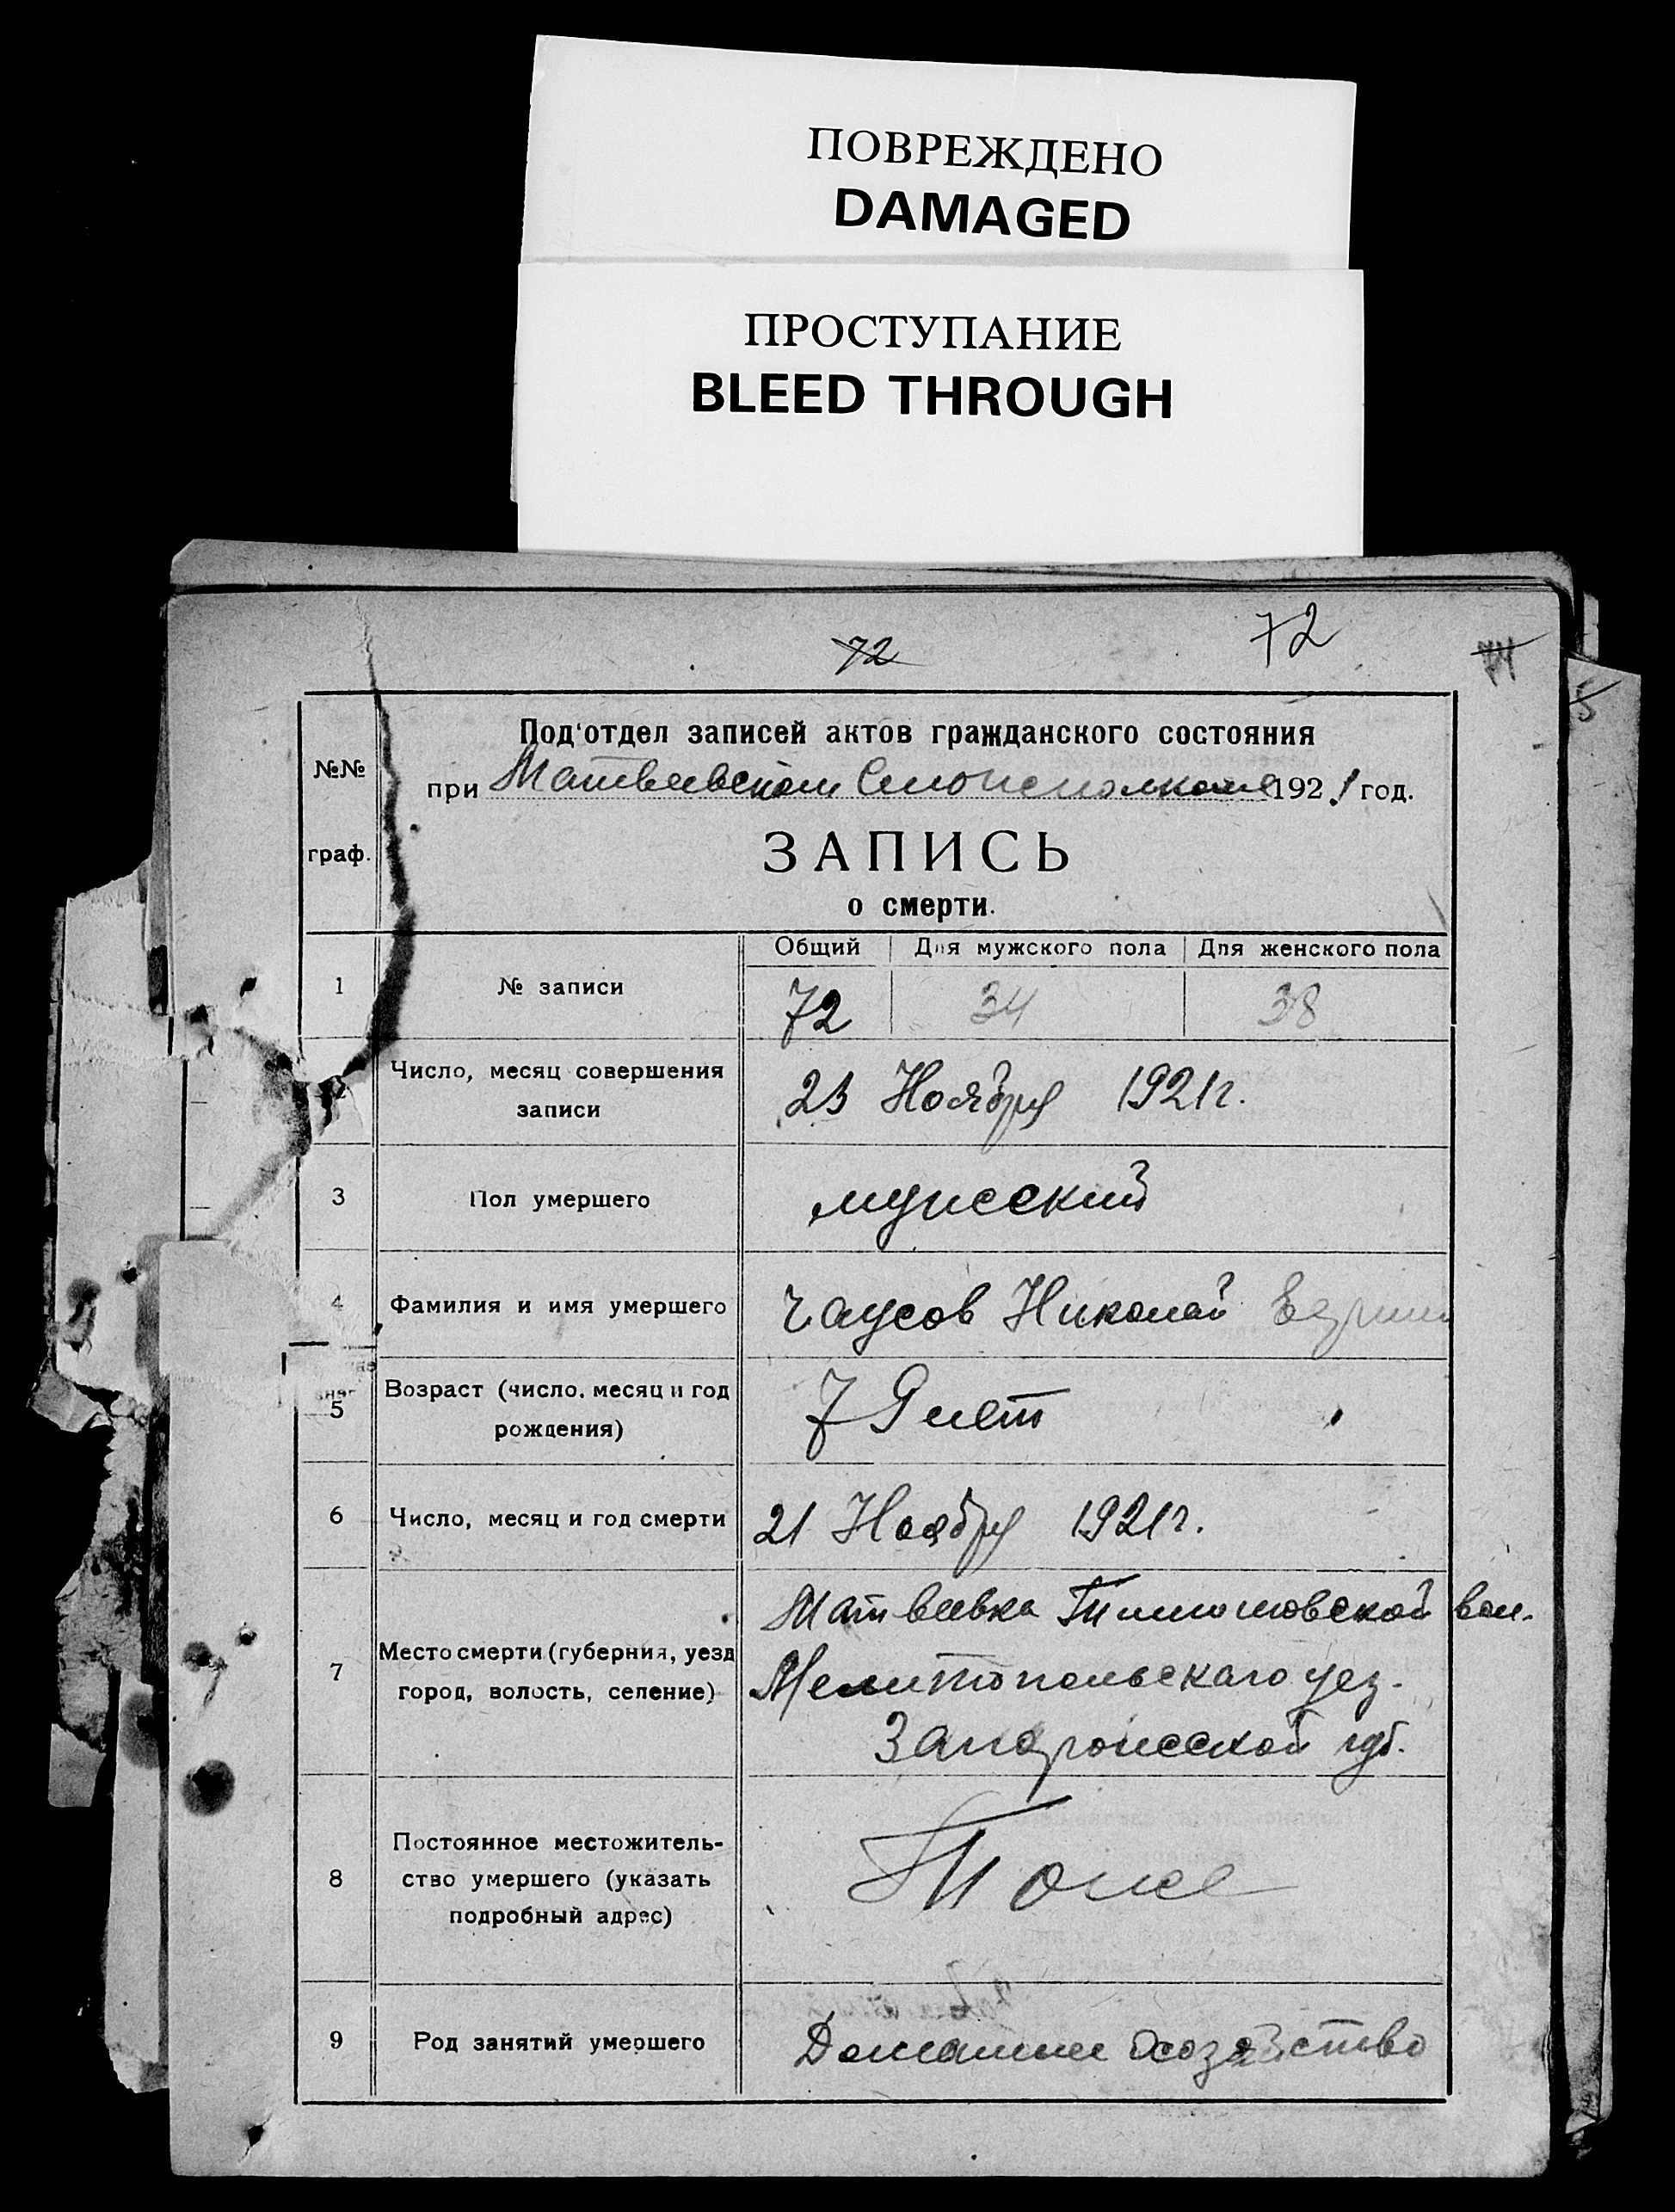 ПОВРЕЖДЕНО
DAMAGED
ПРОСТУПАНИЕ
BLEED THROUGH
72
72
74
5
№№ граф.
Под'отдел записей актов гражданского состояния
при Матвеевском 1921 год.
ЗАПИСЬ
о смерти.
Общий Для мужского пола Для женского пола
1 № записи 72 34 38
2 Число, месяц совершения
записи
23 Ноября 1921 г.
3 Пол умершего мужский
4 Фамилия и имя умершего Чаусов Николай
5 Возраст (число, месяц и год
рождения)
79 лет
6 Число, месяц и год смерти 21 Ноября 1921 г.
7 Место смерти (губерния, уезд
город, волость, селение)
Матвеевка Тимошовской вол.
Мелитопольскаго уез.
Запорожской губ.
8 Постоянное местожитель-
ство умершего (указать
подробный адрес)
Тоже
9 Род занятий умершего Домашнее хозяйство